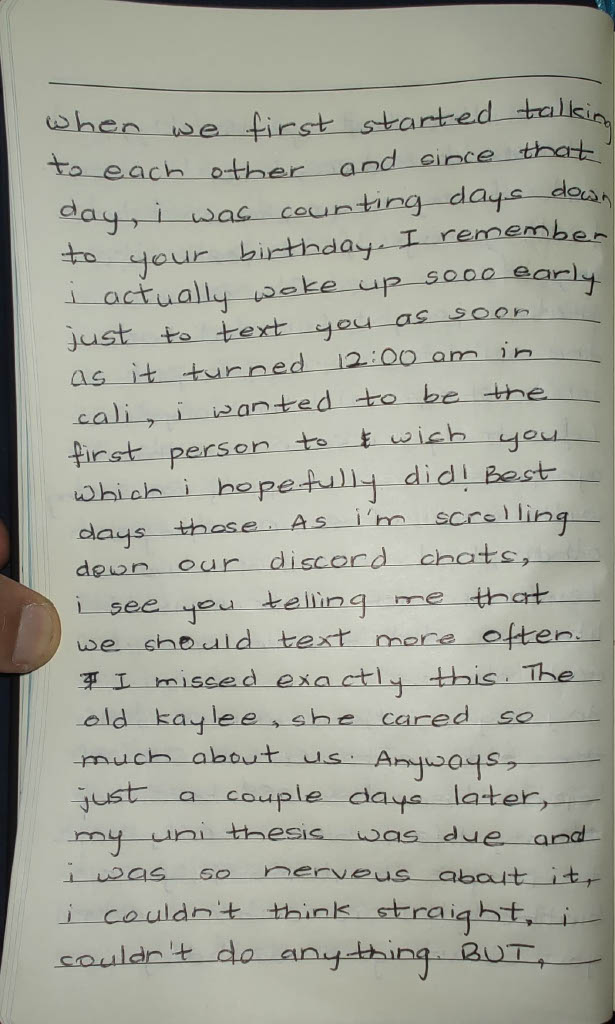 when we first started talking
to each other and since that
day, i was counting days down
to your birthday. I remember
i actually woke up sooo early
just to text you as soon
as it turned 12:00 am in
cali, i wanted to be the
first person to wish you
which i hopefully did! Best
days those. As i'm scrolling
down our discord chats,
i see you telling me that
we should text more often.
I missed exactly this. The
old kaylee, she cared so
much about us. Anyways,
just a couple days later,
my uni thesis was due and
i was so nervous about it,
i couldn't think straight, i
couldn't do anything. BUT,